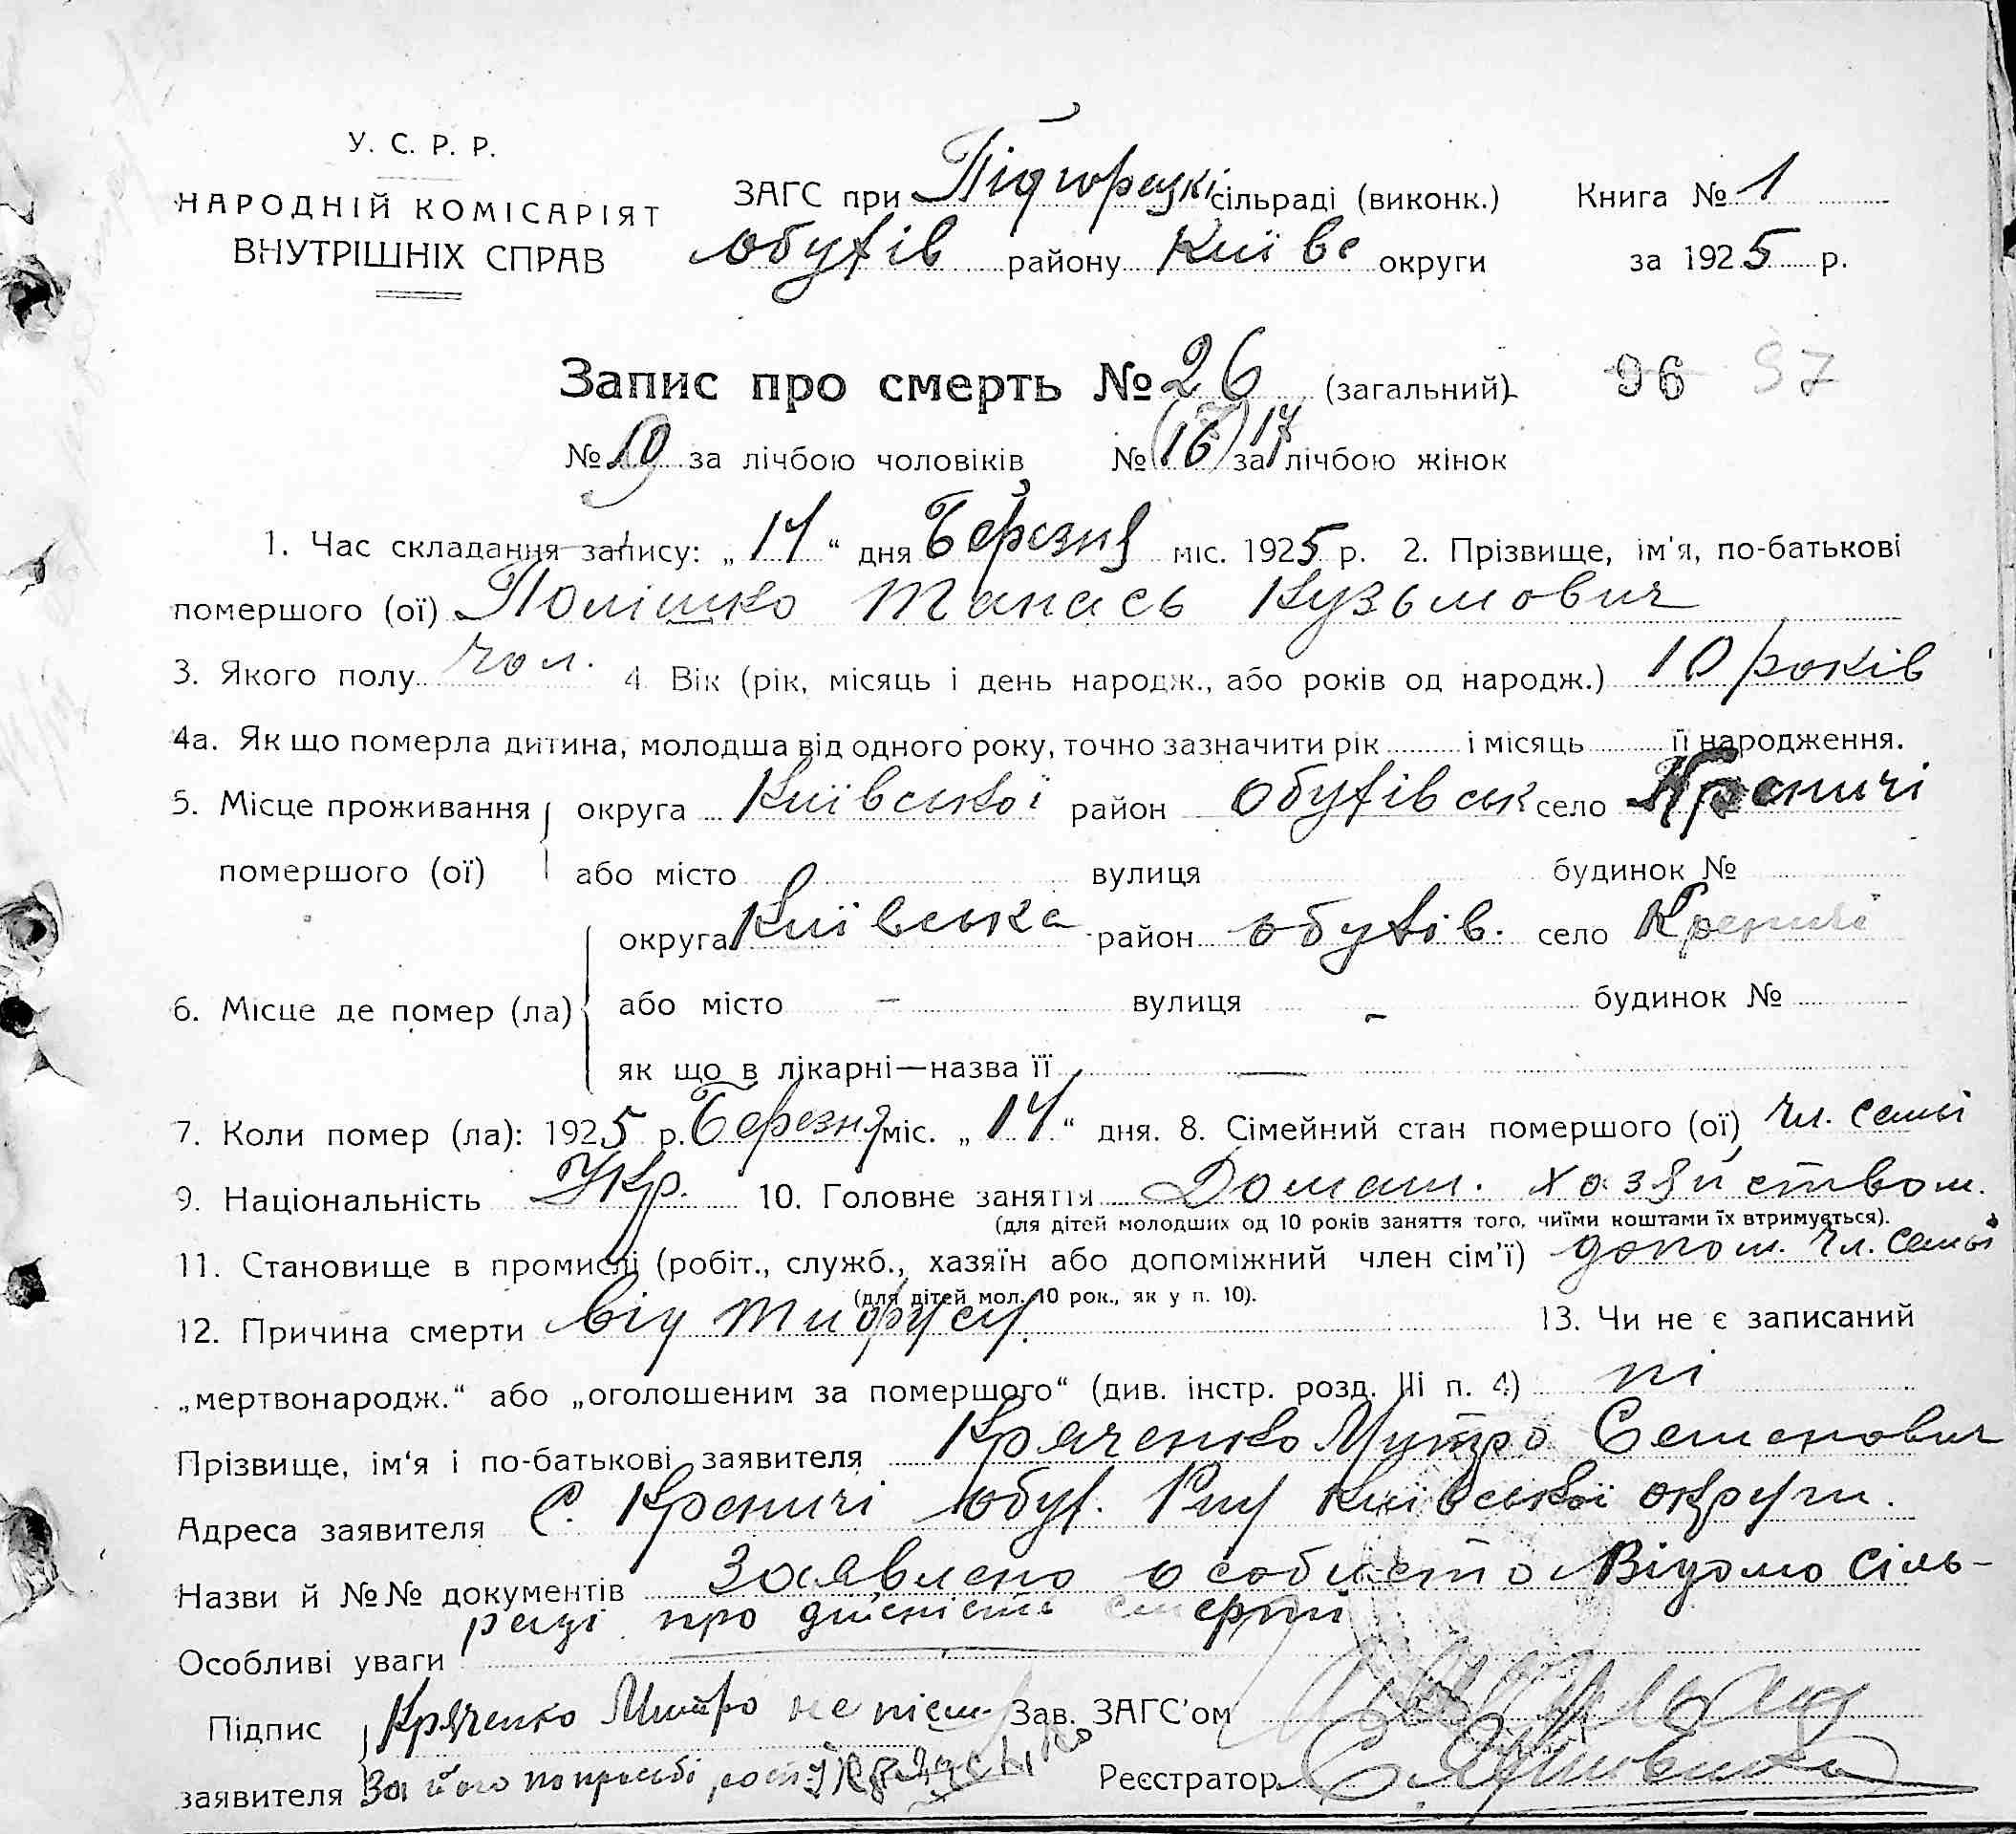 У. С. Р. Р.
НАРОДНІЙ КОМІСАРІЯТ
ВНУТРІШНІХ СПРАВ
ЗАГС при Підгорецкі сільраді (виконк.) Книга № 1
Обухів району Київс округи за 1925 р.
Запис про смерть № 26 (загальний) 96 97
№ 9 за лічбою чоловіків № (16) 17 за лічбою жінок
1. Час складання запису: „ 14 “ дня Березня міс. 1925 р. 2. Прізвище, ім'я, по-батькові
помершого (ої) Полішко Танась Кузьмович
3. Якого полу чол. 4. Вік (рік, місяць і день народж., або років од народж.) 10 років
4а. Як що померла дитина, молодша від одного року, точно зазначити рік і місяць її народження.
5. Місце проживання округа Київської район Обухівськ село Креничі
помершого (ої) або місто вулиця будинок №
округа Київська район Обухів. село Креничі
6. Місце де помер (ла) або місто – вулиця – будинок №
як що в лікарні—назва її —
7. Коли помер (ла): 1925 р. Березня міс. „ 14 “ дня. 8. Сімейний стан помершого (ої) чл. семьі
9. Національність Укр. 10. Головне заняття Домаш. хозяйством.
(для дітей молодших од 10 років заняття того, чиїми коштами їх втримується).
11. Становище в промислі (робіт., служб., хазяїн або допоміжний член сім'ї) допом. чл. семьі
(для дітей мол. 10 рок., як у п. 10).
12. Причина смерти від тифусу. 13. Чи не є записаний
„мертвонародж.“ або „оголошеним за помершого“ (див. інстр. розд. III п. 4) ні
Прізвище, ім'я і по-батькові заявителя Кряченко Митро Семенович
Адреса заявителя С. Креничі Обух. Р-ну Київської округи.
Назви й №№ документів Заявлено особисто Відомо сіль-
раді про дійсність смерти
Особливі уваги
Підпис Кряченко Митро не písьм. Зав. ЗАГС'ом
заявителя За його попросьбі рост. Реєстратор